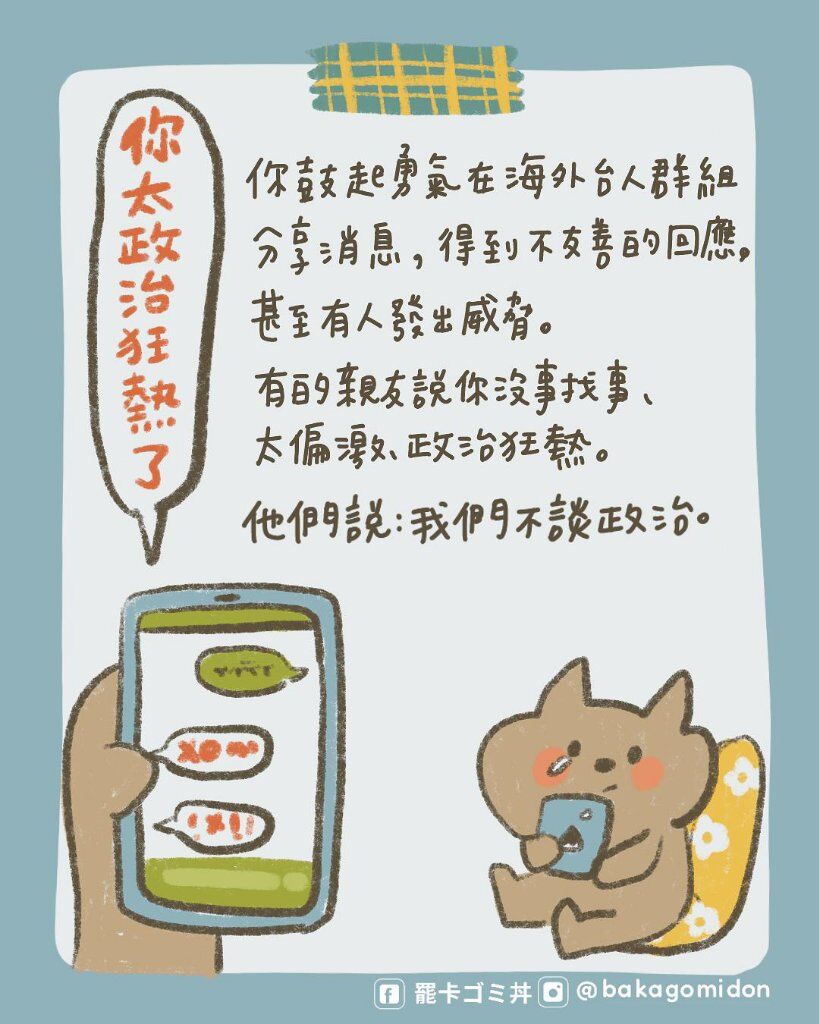 你太政治狂熱了
你鼓起勇氣在海外台人群組
分享消息,得到不友善的回應,
甚至有人發出威脅。
有的親友說你沒事找事、
太偏激、政治狂熱。
他們說:我們不談政治。
罷卡ゴミ丼 @bakagomidon